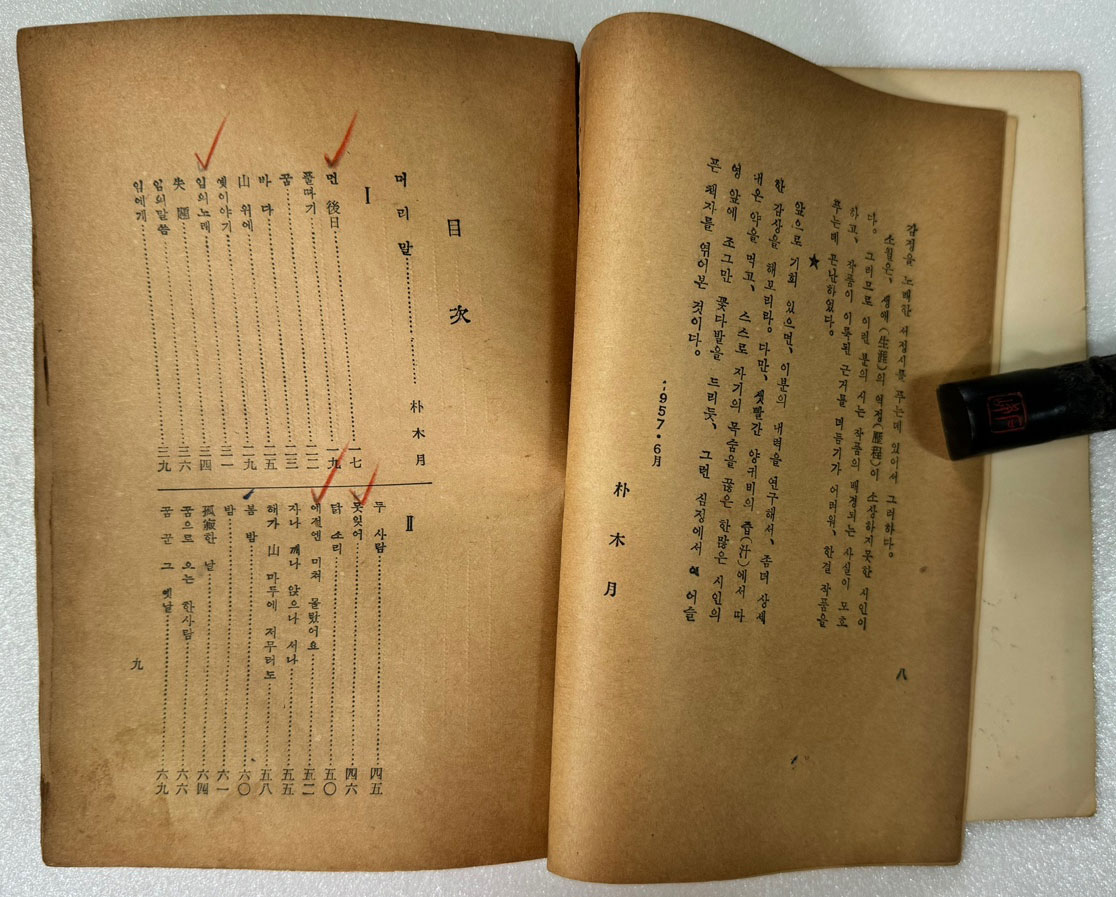 감정을 노래한 서정시를 푸는데 있어서 그러하다。
소월은, 생애(生涯)의 역정(歷程)이 소상하지못한 시인이
다。 그러므로 이런 분의 시는 작품의 배경되는 사실이 모호
하고, 작품이 이룩된 근거를 더듬기가 어려워, 한결 작품을
푸는데 곤난하였다。
★
앞으로 기회 있으면, 이분의 내력을 연구해서, 좀더 상세
한 감상을 해보리라。 다만, 샛빨간 양귀비의 즙(汁)에서 따
내온 약을 먹고, 스스로 자기의 목숨을 끊은 한많은 시인의
영 앞에 조그만 꽃다발을 드리듯, 그런 심정에서 이 어슬
픈 책자를 엮어본 것이다。
1957·6月
朴木月
八
目次
머리말……朴木月
I
먼 後日……一七
풀따기……一九
꿈……二二
바다……二三
山 위에……二五
옛이야기……二九
임의노래……三一
失題……三四
임의말씀……三六
임에게……三九
II
두 사람……四五
못잊어……四六
닭 소리……五〇
예전엔 미쳐 몰랐어요……五二
자나 깨나 앉으나 서나……五五
해가 山 마루에 저무러도……五八
봄 밤……六〇
밤……六一
孤寂한 날……六四
꿈으로 오는 한사람……六六
꿈 꾼 그 옛날……六九
九